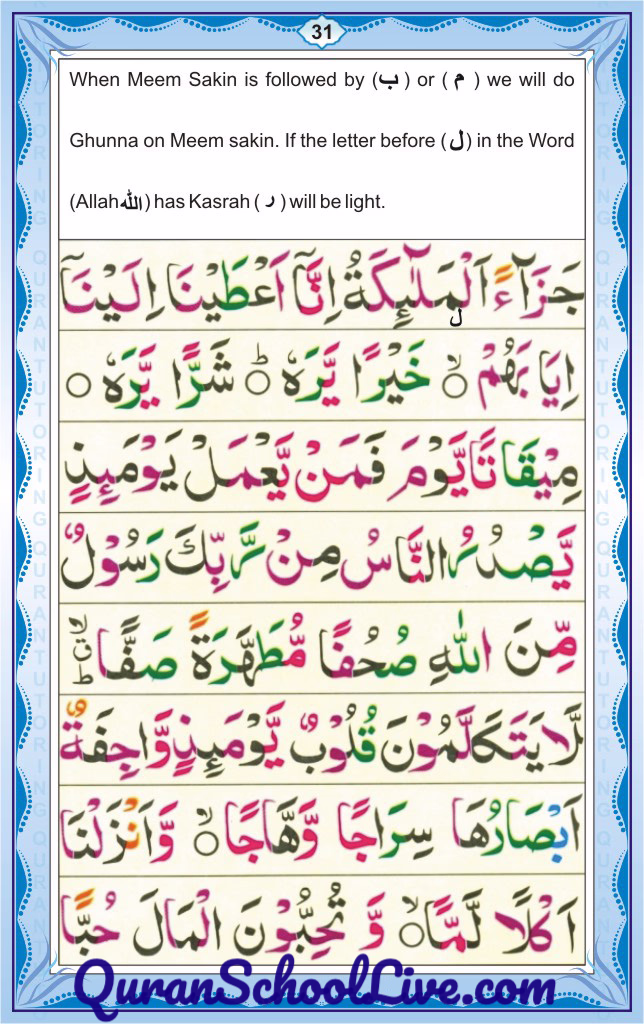 31
When Meem Sakin is followed by (ب) or ( م ) we will do
Ghunna on Meem sakin. If the letter before (ل) in the Word
(Allahالله) has Kasrah ( ر ) will be light.
جَزَآءً اَلْمَلٰٓئِكَةُ اِنَّآ اَعْطَيْنَا اِلَيْنَآ
ل
اِيَا بَهُمْ ۙ خَيْرًا يَّرَهٗ ؕ شَرًّا يَّرَهٗ ○
مِيْقَا تًا يَّوْمَ فَمَنْ يَّعْمَلْ يَوْمَئِذٍ
يَّصْدُرُ النَّاسُ مِنْ رَّبِّكَ رَسُوْلٌ
مِّنَ اللّٰهِ صُحُفًا مُّطَهَّرَةً صَفًّا
لَّا يَتَكَلَّمُوْنَ قُلُوْبٌ يَّوْمَئِذٍ وَّاجِفَةٌ
اَبْصَارُهَا سِرَاجًا وَّهَّاجًا ۙ وَّاَنْزَلْنَا
اَكْلًا لَّمًّا ۙ وَّ تُحِبُّوْنَ الْمَالَ حُبًّا
QuranSchoolLive.com
QURAN TUTORING QURAN TUTORING
QURAN TUTORING QURAN TUTORING